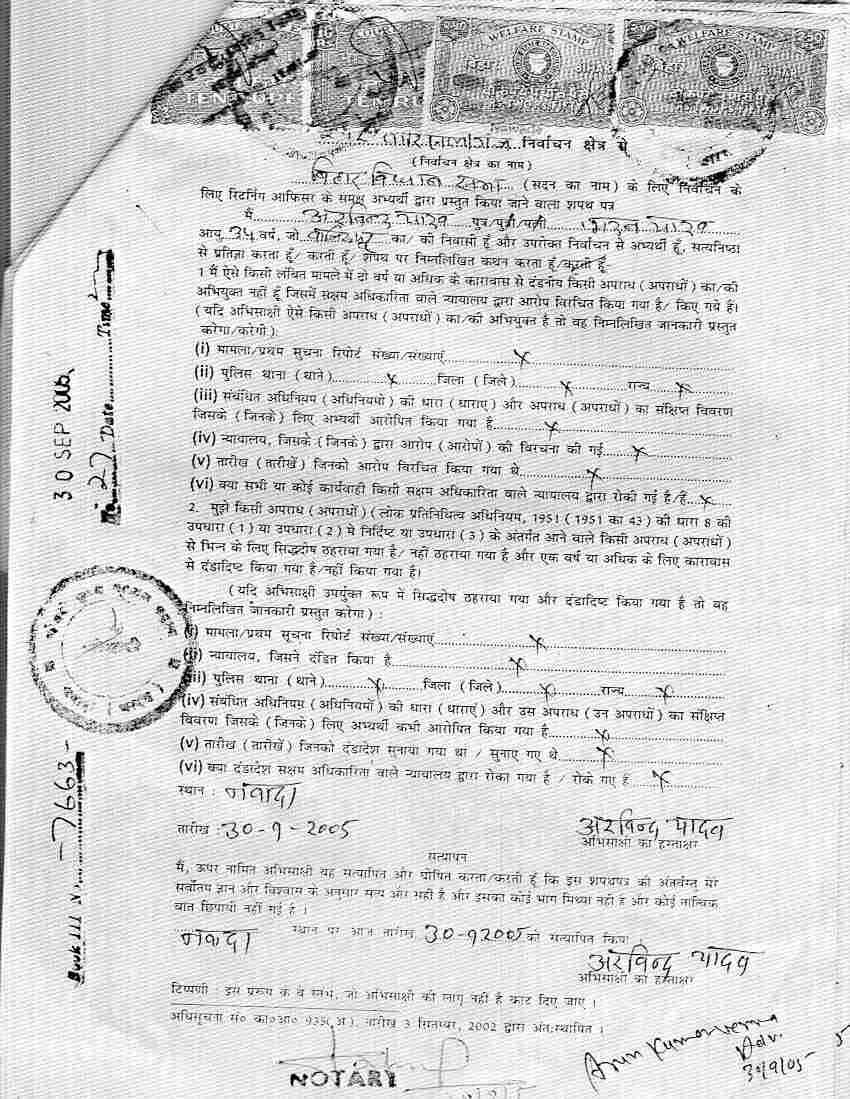 WELFARE STAMP
WELFARE STAMP
निर्वाचन क्षेत्र से
(निर्वाचन क्षेत्र का नाम)
बिहार विधान सभा (सदन का नाम) के लिए निर्वाचन के
लिए रिटर्निंग आफिसर के समक्ष अभ्यर्थी द्वारा प्रस्तुत किया जाने वाला शपथ पत्र
मैं पुत्र/पुत्री/पत्नी
आयु 34 वर्ष, जो का/ की निवासी हूँ और उपरोक्त निर्वाचन से अभ्यर्थी हूँ, सत्यनिष्ठा
से प्रतिज्ञा करता हूँ/ करती हूँ/ शपथ पर निम्नलिखित कथन करता हूँ/करती हूँ
1 मैं ऐसे किसी लंबित मामले में दो वर्ष या अधिक के कारावास से दंडनीय किसी अपराध (अपराधों) का/की
अभियुक्त नहीं हूँ जिसमें सक्षम अधिकारिता वाले न्यायालय द्वारा आरोप विरचित किया गया है/ किए गये हैं।
(यदि अभिसाक्षी ऐसे किसी अपराध (अपराधों) का/की अभियुक्त है तो वह निम्नलिखित जानकारी प्रस्तुत
करेगा/करेगी):
(i) मामला/प्रथम सुचना रिपोर्ट संख्या/संख्याएं x
(ii) पुलिस थाना (थाने) x जिला (जिले) x राज्य x
(iii) संबंधित अधिनियम (अधिनियमों) की धारा (धाराएं) और अपराध (अपराधों) का संक्षिप्त विवरण
जिसके (जिनके) लिए अभ्यर्थी आरोपित किया गया है x
(iv) न्यायालय, जिसके (जिनके) द्वारा आरोप (आरोपों) की विरचना की गई x
(v) तारीख (तारीखें) जिनको आरोप विरचित किया गया थे x
(vi) क्या सभी या कोई कार्यवाही किसी सक्षम अधिकारिता वाले न्यायालय द्वारा रोकी गई है/हैं x
2. मुझे किसी अपराध (अपराधों) (लोक प्रतिनिधित्व अधिनियम, 1951 (1951 का 43) की धारा 8 की
उपधारा (1) या उपधारा (2) मे निर्दिष्ट या उपधारा (3) के अंतर्गत आने वाले किसी अपराध (अपराधों)
से भिन्न के लिए सिद्धदोष ठहराया गया है/ नहीं ठहराया गया है और एक वर्ष या अधिक के लिए कारावास
से दंडादिष्ट किया गया है/नहीं किया गया है।
(यदि अभिसाक्षी उपर्युक्त रूप में सिद्धदोष ठहराया गया और दंडादिष्ट किया गया है तो वह
निम्नलिखित जानकारी प्रस्तुत करेगा) :
(i) मामला/प्रथम सूचना रिपोर्ट संख्या/संख्याएं x
(ii) न्यायालय, जिसने दंडित किया है x
(iii) पुलिस थाना (थाने) x जिला (जिले) x राज्य x
(iv) संबंधित अधिनियम (अधिनियमों) की धारा (धाराएं) और उस अपराध (उन अपराधों) का संक्षिप्त
विवरण जिसके (जिनके) लिए अभ्यर्थी कभी आरोपित किया गया है x
(v) तारीख (तारीखें) जिनको दंडादेश सुनाया गया था / सुनाए गए थे x
(vi) क्या दंडादेश सक्षम अधिकारिता वाले न्यायालय द्वारा रोका गया है / रोके गए हैं x
स्थान : नवादा
तारीख : 30-9-2005
अरविन्द यादव
अभिसाक्षी का हस्ताक्षर
सत्यापन
मैं, ऊपर नामित अभिसाक्षी यह सत्यापित और घोषित करता/करती हूँ कि इस शपथपत्र की अंतर्वस्तु मेरे
सर्वोत्तम ज्ञान और विश्वास के अनुसार सत्य और सही है और इसका कोई भाग मिथ्या नहीं है और कोई तात्विक
बात छिपायी नहीं गई है ।
नवादा स्थान पर आज तारीख 30-9-2005 को सत्यापित किया
अरविन्द यादव
अभिसाक्षी का हस्ताक्षर
टिप्पणी : इस प्ररूप के वे स्तंभ, जो अभिसाक्षी को लागू नहीं है काट दिए जाए ।
अधिसूचना सं० का०आ० 935(अ), तारीख 3 सितम्बर, 2002 द्वारा अंतःस्थापित ।
NOTARY
Arun Kumar Verma
Adv.
30/9/05
30 SEP 2005
27 Date Time
Book III N. -7663-